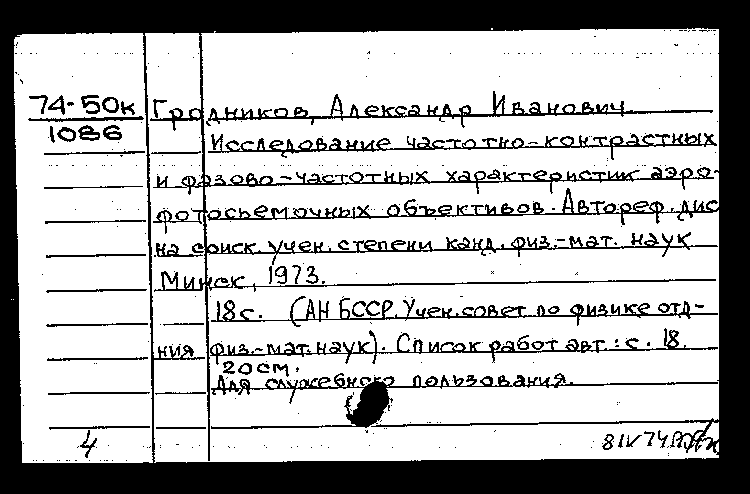 74-50к Гродников, Александр Иванович
1086
Исследование частотно-контрастных
и фазово-частотных характеристик аэро-
фотосъемочных объективов. Автореф. дис
на соиск. учен. степени канд. физ.-мат. наук
Минск, 1973.
18 с. (АН БССР. Учен. совет по физике отд-
ния физ.-мат. наук). Список работ авт.: с. 18.
20 см.
Для служебного пользования.
4
8 IV 74